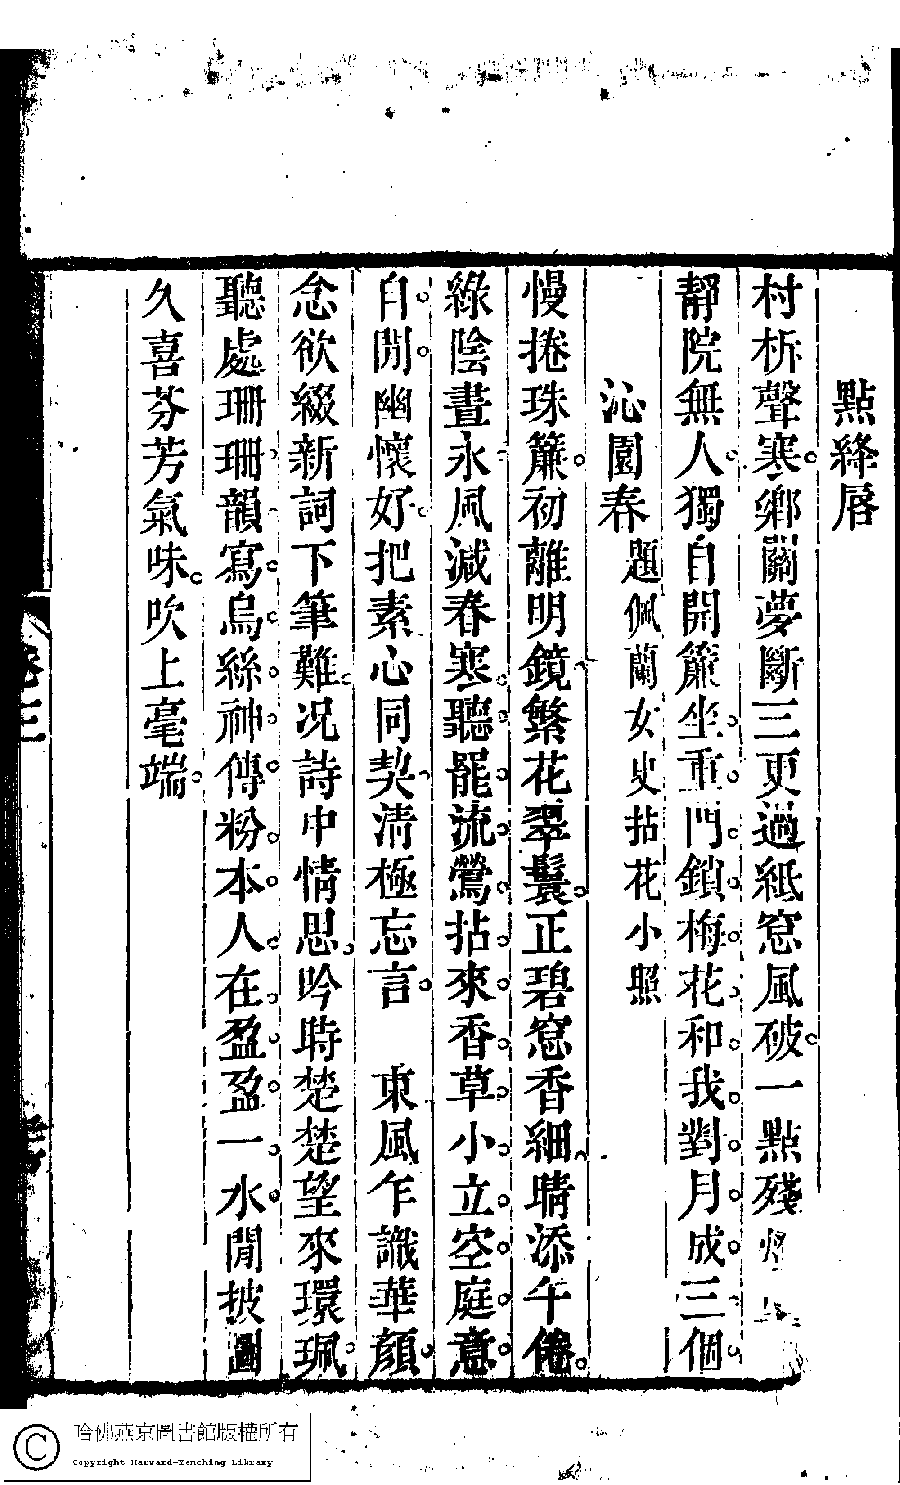 點絳唇
村柝聲寒鄉關夢斷三更過紙窓風破一點殘
靜院無人獨自開簾坐重門鎖梅花和我對月成三個
沁園春 題佩蘭女史拈花小照
慢捲珠簾初離明鏡繁花翠鬟正碧窓香細晴添午倦
綠陰晝永風減春寒聽罷流鶯拈來香草小立空庭意
自閒幽懷好把素心同契清極忘言 東風乍識華顏
念欲綴新詞下筆難况詩中情思吟時楚楚望來環珮
聽處珊珊韻寫烏絲神傳粉本人在盈盈一水閒披圖
久喜芬芳氣味吹上毫端
卷三
哈佛燕京圖書館版權所有
Copyright Harvard-Yenching Library